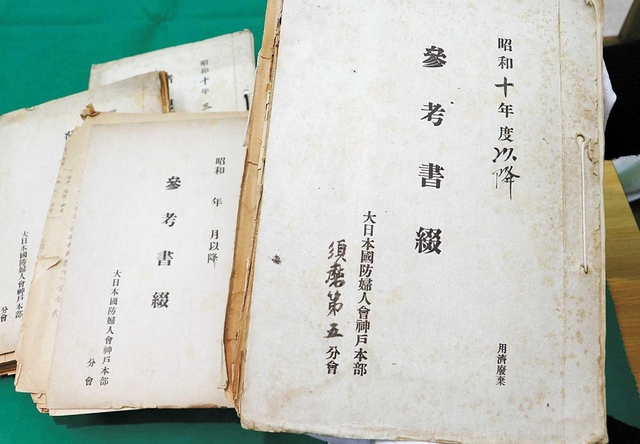 昭和十年度以降
參考書綴
大日本國防婦人會神戸本部
須磨第五分會
用濟廢棄
昭和 年 月以降
參考書綴
大日本國防婦人會神戸本部
分會
昭和十年三
大日本國防
分會